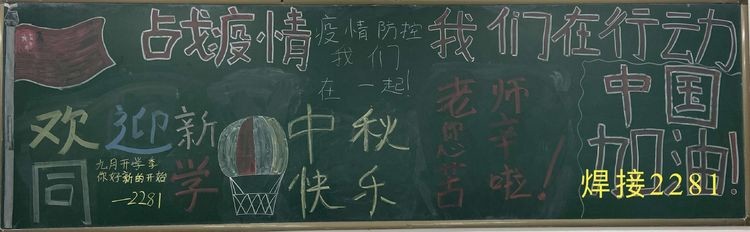 战疫情
疫情防控
我们
在一起!
我们在行动
欢迎新
同学
九月开学季
你好新的开始
—2281
中秋
快乐
老师
您辛
苦啦!
中国
加油!
焊接2281